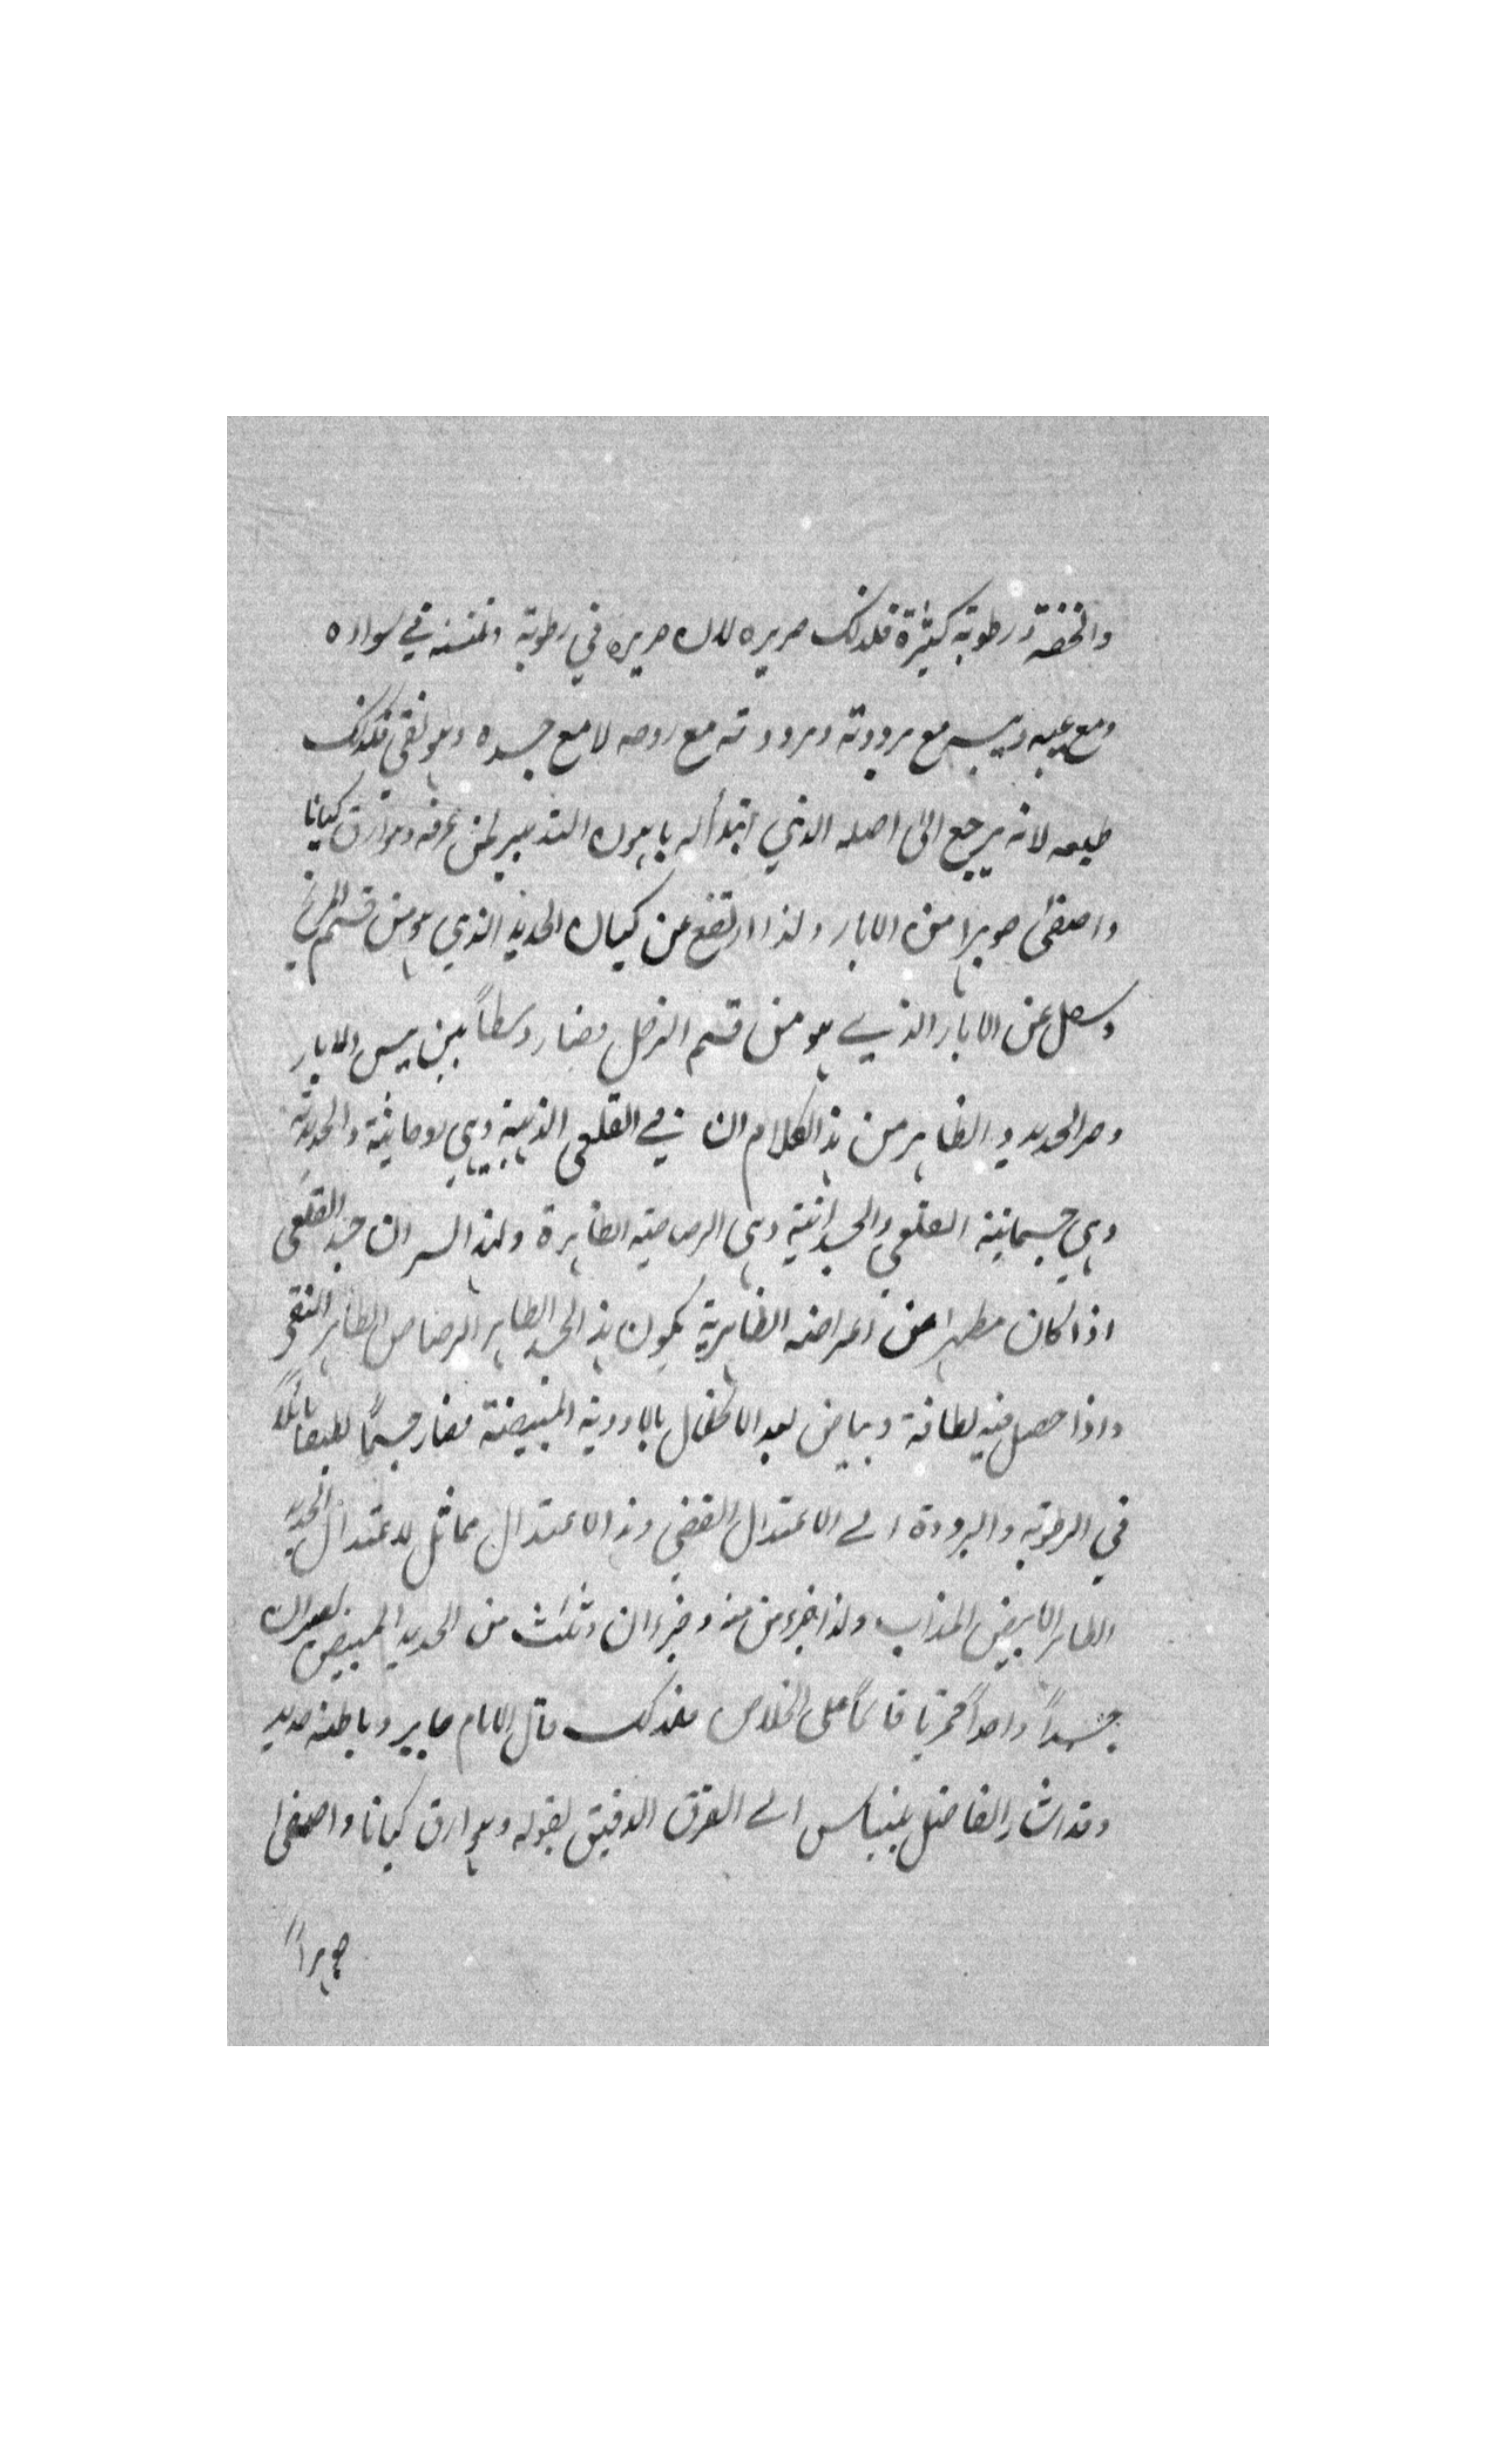 والخفة ورطوبته كثيرة فلذلك صريره لان صريره في رطوبته ونتنه في سواده
ومع عيبه ويبسه مع برودته وبرودته مع روحه لا مع جسده وهو نقي فلذلك
طبعه لانه يرجع الى اصله الذي ابتدأ له باهون التدبير لمن عرفه وهو ارق كيانا
واصفى جوهرا من الابار ولذا ارتفع عن كيان الحديد الذي هو من قسم المريخ
وسفل عن الابار الذي هو من قسم الزحل فصار وسطاً بين يبس الابار
وحر الحديد والظاهر من هذا الكلام ان في القلعي الذهبية وهي روحانيته والحديدية
وهي جسمانية القلعي والجسدانية وهي الرصاصية الظاهرة ولهذا السر ان جسد القلعي
اذا كان مطهرا من اعراضه الظاهرية يكون هذا الجسد الطاهر الرصاص الطاهر النقي
واذا حصل فيه لطافة وبياض بعد الاكتفال بالادوية المبيضة فصار جسماً للبقا مائلاً
في الرطوبة والبرودة الى الاعتدال الفضي وهذا الاعتدال مماثل لاعتدال الحديد
الطاهر الابيض المذاب ولذا جزء من منه وجزءان وثلث من الحديد المبيض يصيران
جسداً واحداً قمريا قائماً على الخلاص فلذلك قال الامام جابر وباطنه حديد
وقد اشار الفاضل بليناس الى الفرق الدقيق بقوله وهو ارق كيانا واصفى
جوهراً